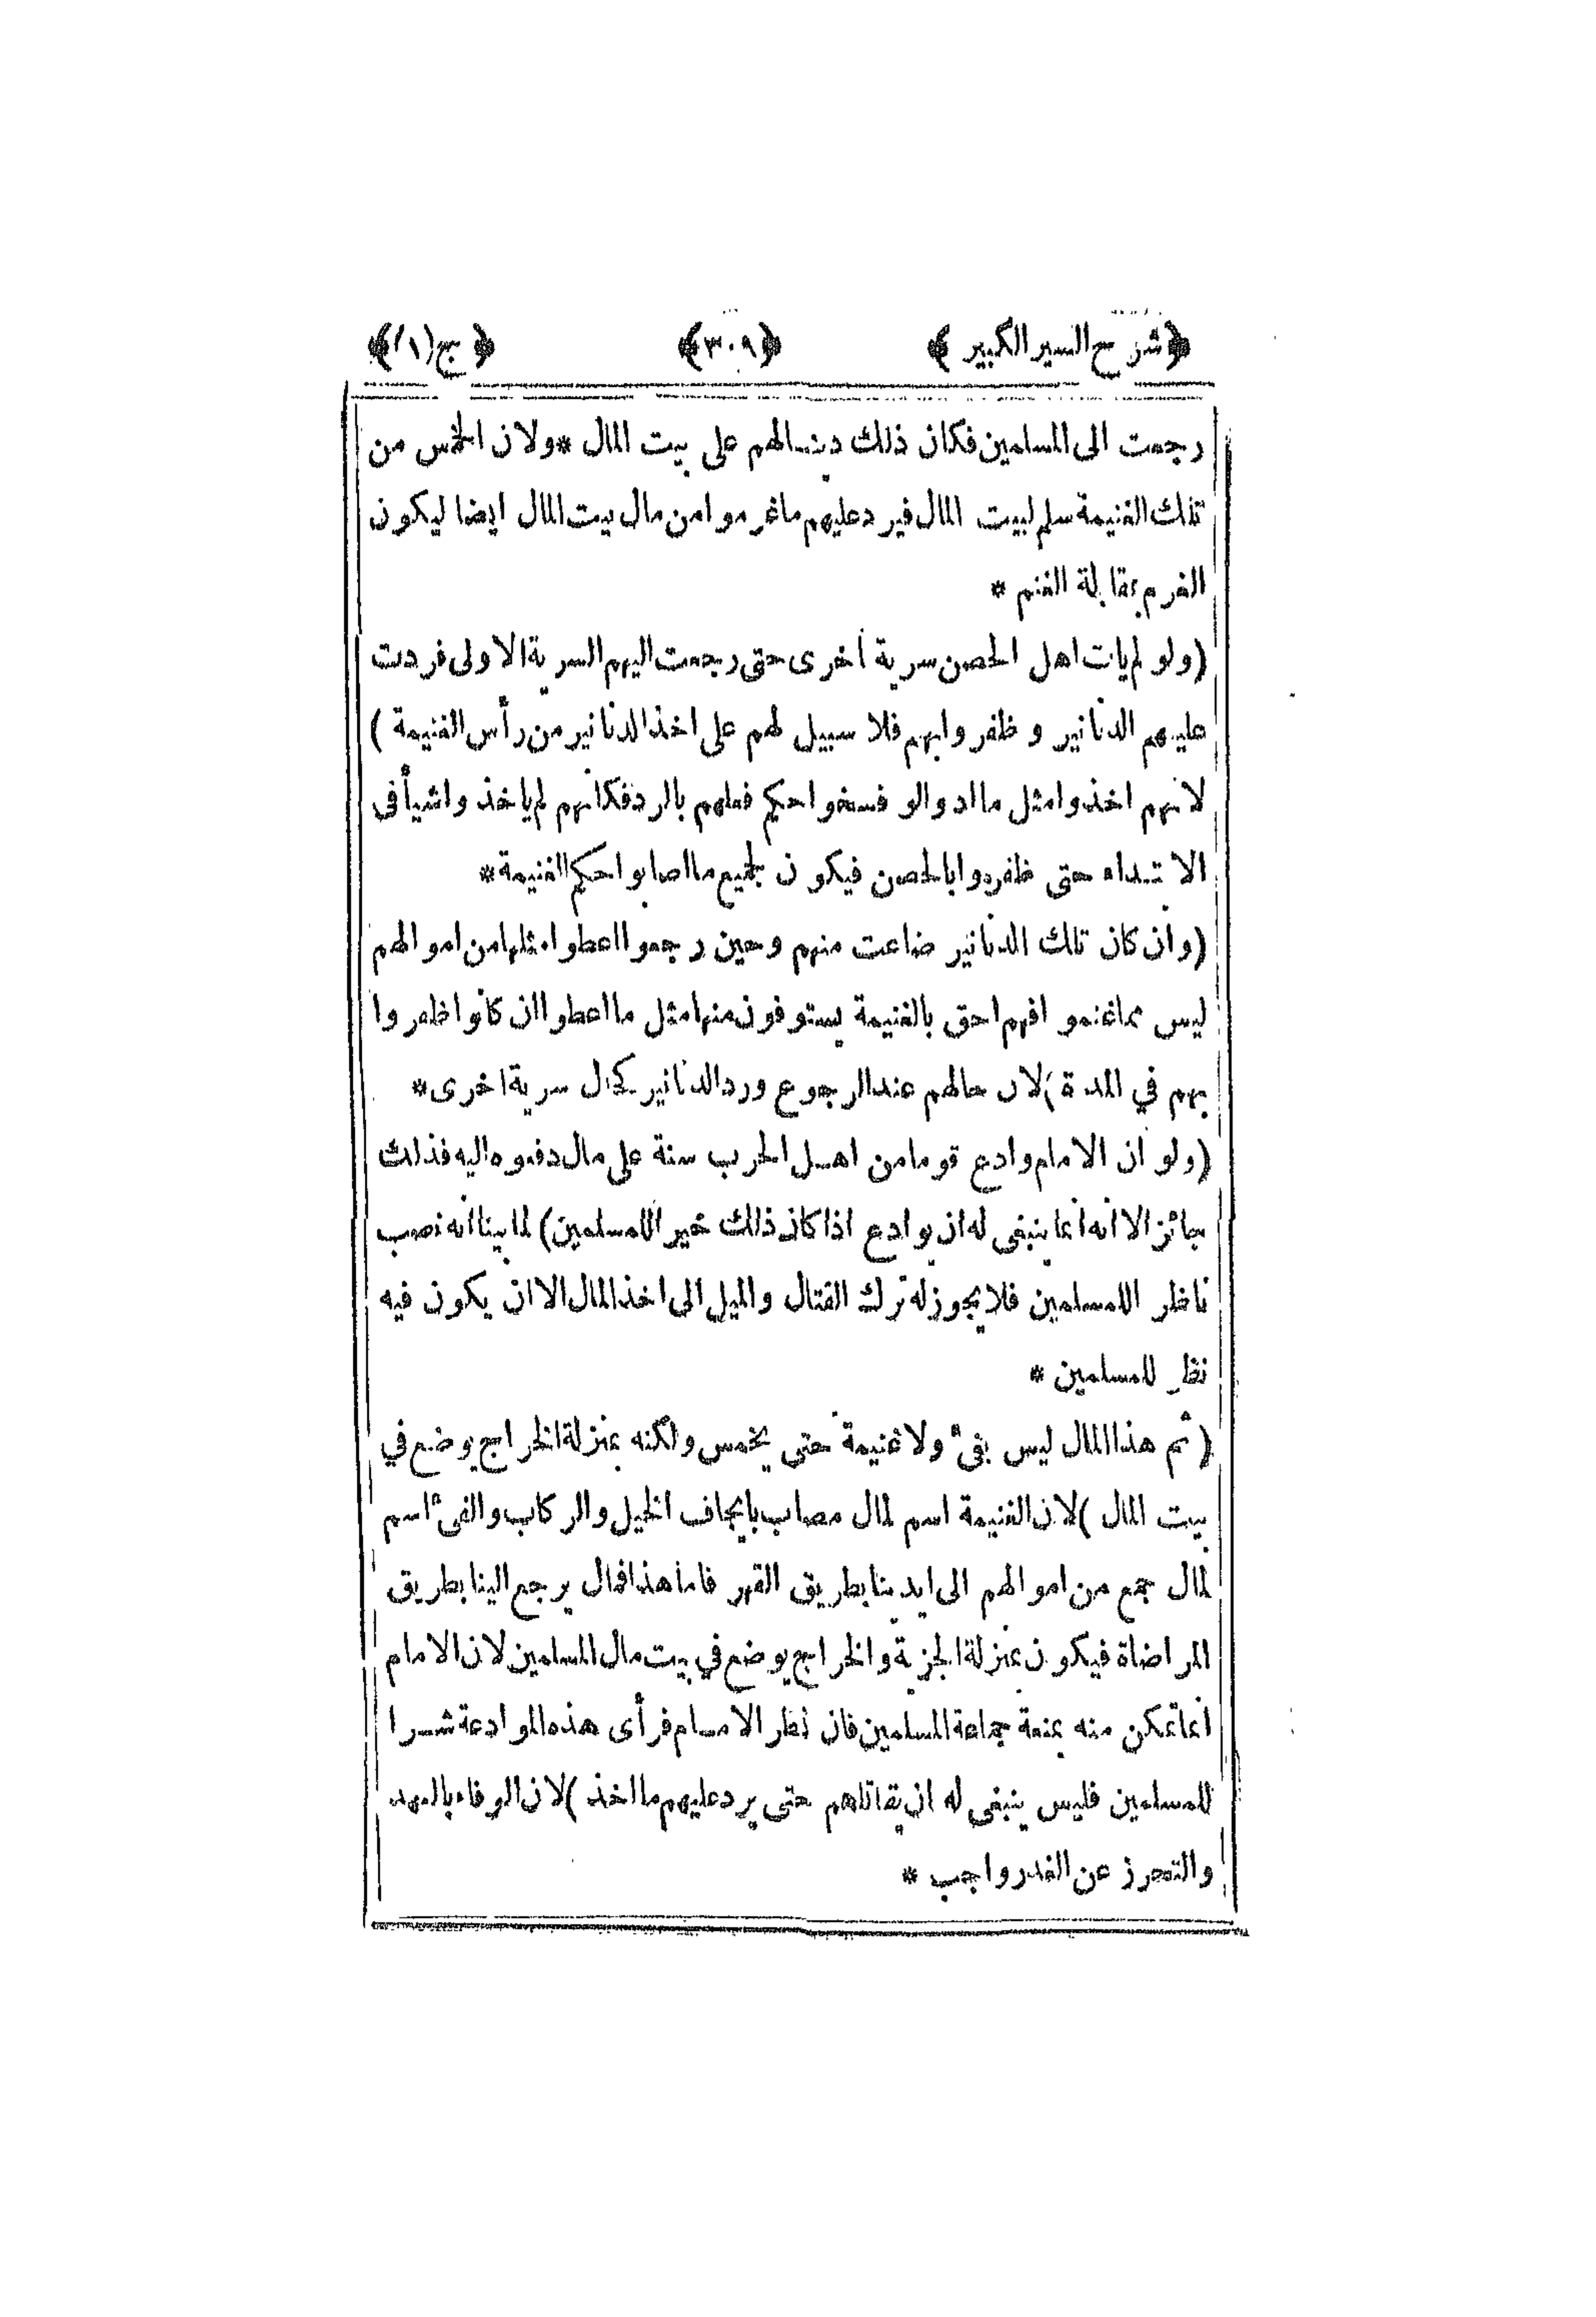 ﴿شرح السير الكبير﴾ ﴿٣٠٩﴾ ﴿ج(١)﴾
رجعت الى المسلمين فكان ذلك دينا لهم على بيت المال *ولان الخمس من
تلك الغنيمة سلم لبيت المال فيرد عليهم ما غرموا من مال بيت المال ايضا ليكون
الغرم بمقابلة الغنم *
(ولو لم يات اهل الحصن سرية اخرى حتى رجعت اليهم السرية الاولى فردت
عليهم الدنانير و ظفروا بهم فلا سبيل لهم على اخذ الدنانير من رأس الغنيمة )
لانهم اخذوا مثل ما ادوا او فسخوا حكم فعلهم بالرد فكانهم لم ياخذوا شيأ فى
الابتداء حتى ظفروا بالحصن فيكون لجميع ما اصابوا حكم الغنيمة*
(وان كان تلك الدنانير ضاعت منهم وحين رجعوا اعطوا مثلها من اموالهم
ليس مما غنموا فهم احق بالغنيمة يستوفون منها مثل ما اعطوا ان كانوا ظفروا
بهم في المدة )لان حالهم عند الرجوع ورد الدنانير كحال سرية اخرى*
(ولو ان الامام وادع قوما من اهل الحرب سنة على مال دفعوه اليه فذلك
جائز الا انه انما ينبغى له ان يوادع اذا كان ذلك خيرا للمسلمين) لما بينا انه نصب
ناظر اللمسلمين فلا يجوز له ترك القتال والميل الى اخذ المال الا ان يكون فيه
نظر للمسلمين *
( ثم هذا المال ليس بفىء ولا غنيمة حتى يخمس ولكنه بمنزلة الخراج يوضع في
بيت المال )لان الغنيمة اسم لمال مصاب بايجاف الخيل والركاب والفىء اسم
لمال جمع من اموالهم الى ايدينا بطريق القهر فاما هذا فمال يرجع الينا بطريق
المراضاة فيكون بمنزلة الجزية والخراج يوضع في بيت مال المسلمين لان الامام
انما تمكن منه بمنعة جماعة المسلمين فان نظر الامام فرأى هذه الموادعة شرا
للمسلمين فليس ينبغى له ان يقاتلهم حتى يرد عليهم ما اخذ )لان الوفاء بالعهد
والتحرز عن الغدر واجب *